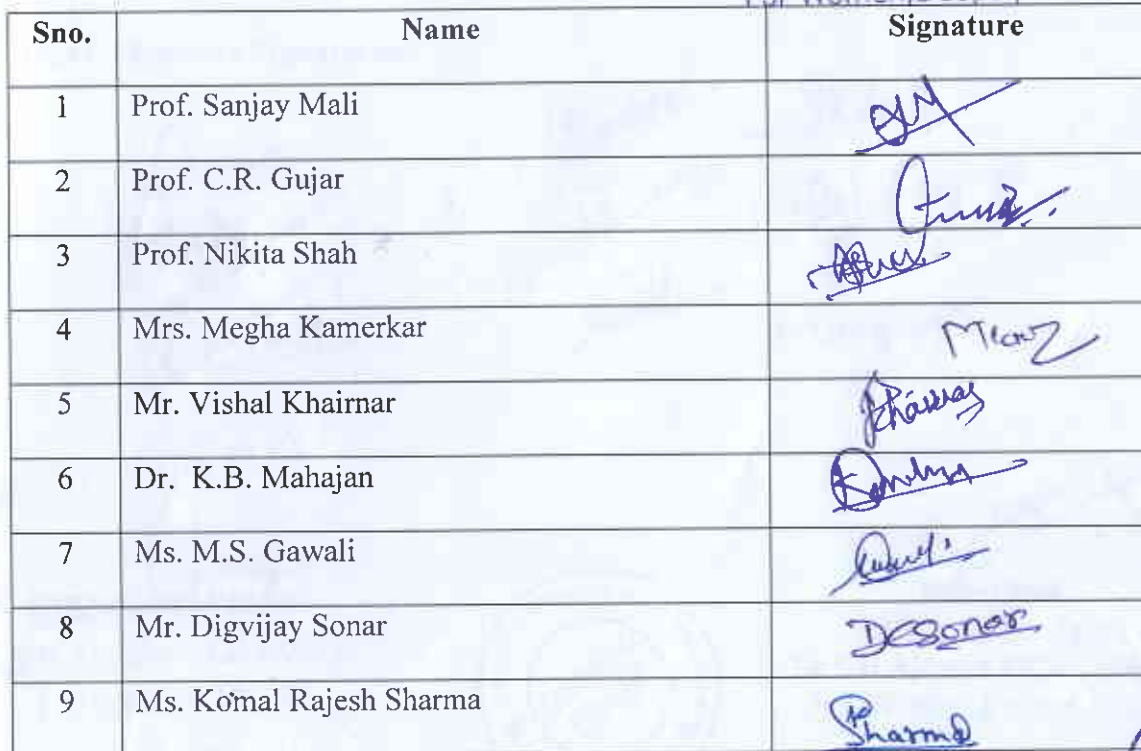 For Women,
Sno. Name Signature
1 Prof. Sanjay Mali
2 Prof. C.R. Gujar
3 Prof. Nikita Shah
4 Mrs. Megha Kamerkar
5 Mr. Vishal Khairnar
6 Dr. K.B. Mahajan
7 Ms. M.S. Gawali
8 Mr. Digvijay Sonar DCSonar
9 Ms. Komal Rajesh Sharma Sharma